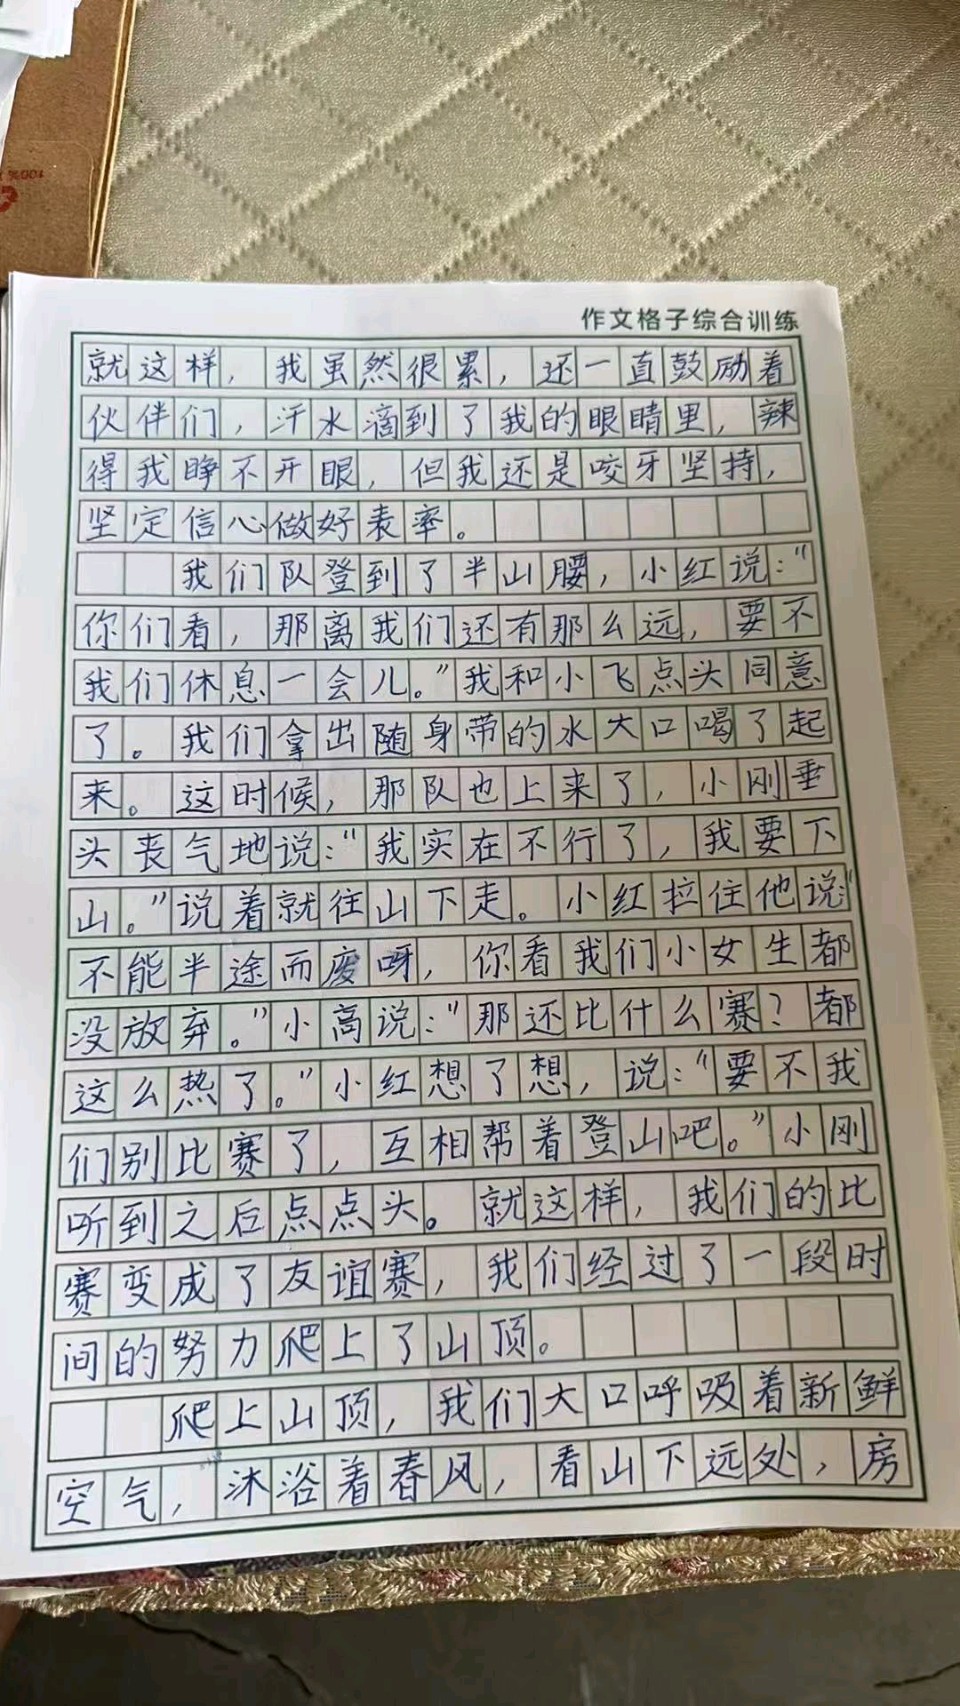 100%
作文格子综合训练
就这样，我虽然很累，还一直鼓励着
伙伴们，汗水滴到了我的眼睛里，辣
得我睁不开眼，但我还是咬牙坚持，
坚定信心做好表率。
我们队登到了半山腰，小红说：“
你们看，那离我们还有那么远，要不
我们休息一会儿。”我和小飞点头同意
了。我们拿出随身带的水大口喝了起
来。这时候，那队也上来了，小刚垂
头丧气地说：“我实在不行了，我要下
山。”说着就往山下走。小红拉住他说：“
不能半途而废呀，你看我们小女生都
没放弃。”小高说：“那还比什么赛？都
这么热了。”小红想了想，说：“要不我
们别比赛了，互相帮着登山吧。”小刚
听到之后点点头。就这样，我们的比
赛变成了友谊赛，我们经过了一段时
间的努力爬上了山顶。
爬上山顶，我们大口呼吸着新鲜
空气，沐浴着春风，看山下远处，房